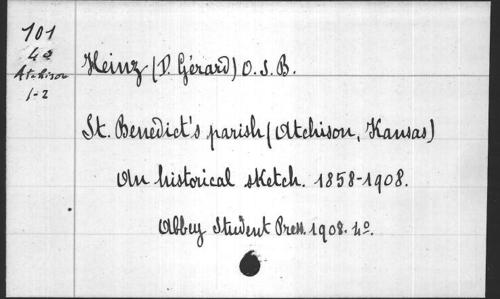 101
4º
Atchison
1-2
Heinz (D. Gérard) O.S.B.
St. Benedict's parish (Atchison, Kansas)
An historical sketch. 1858-1908.
Abbey Student Press. 1908. 4º.